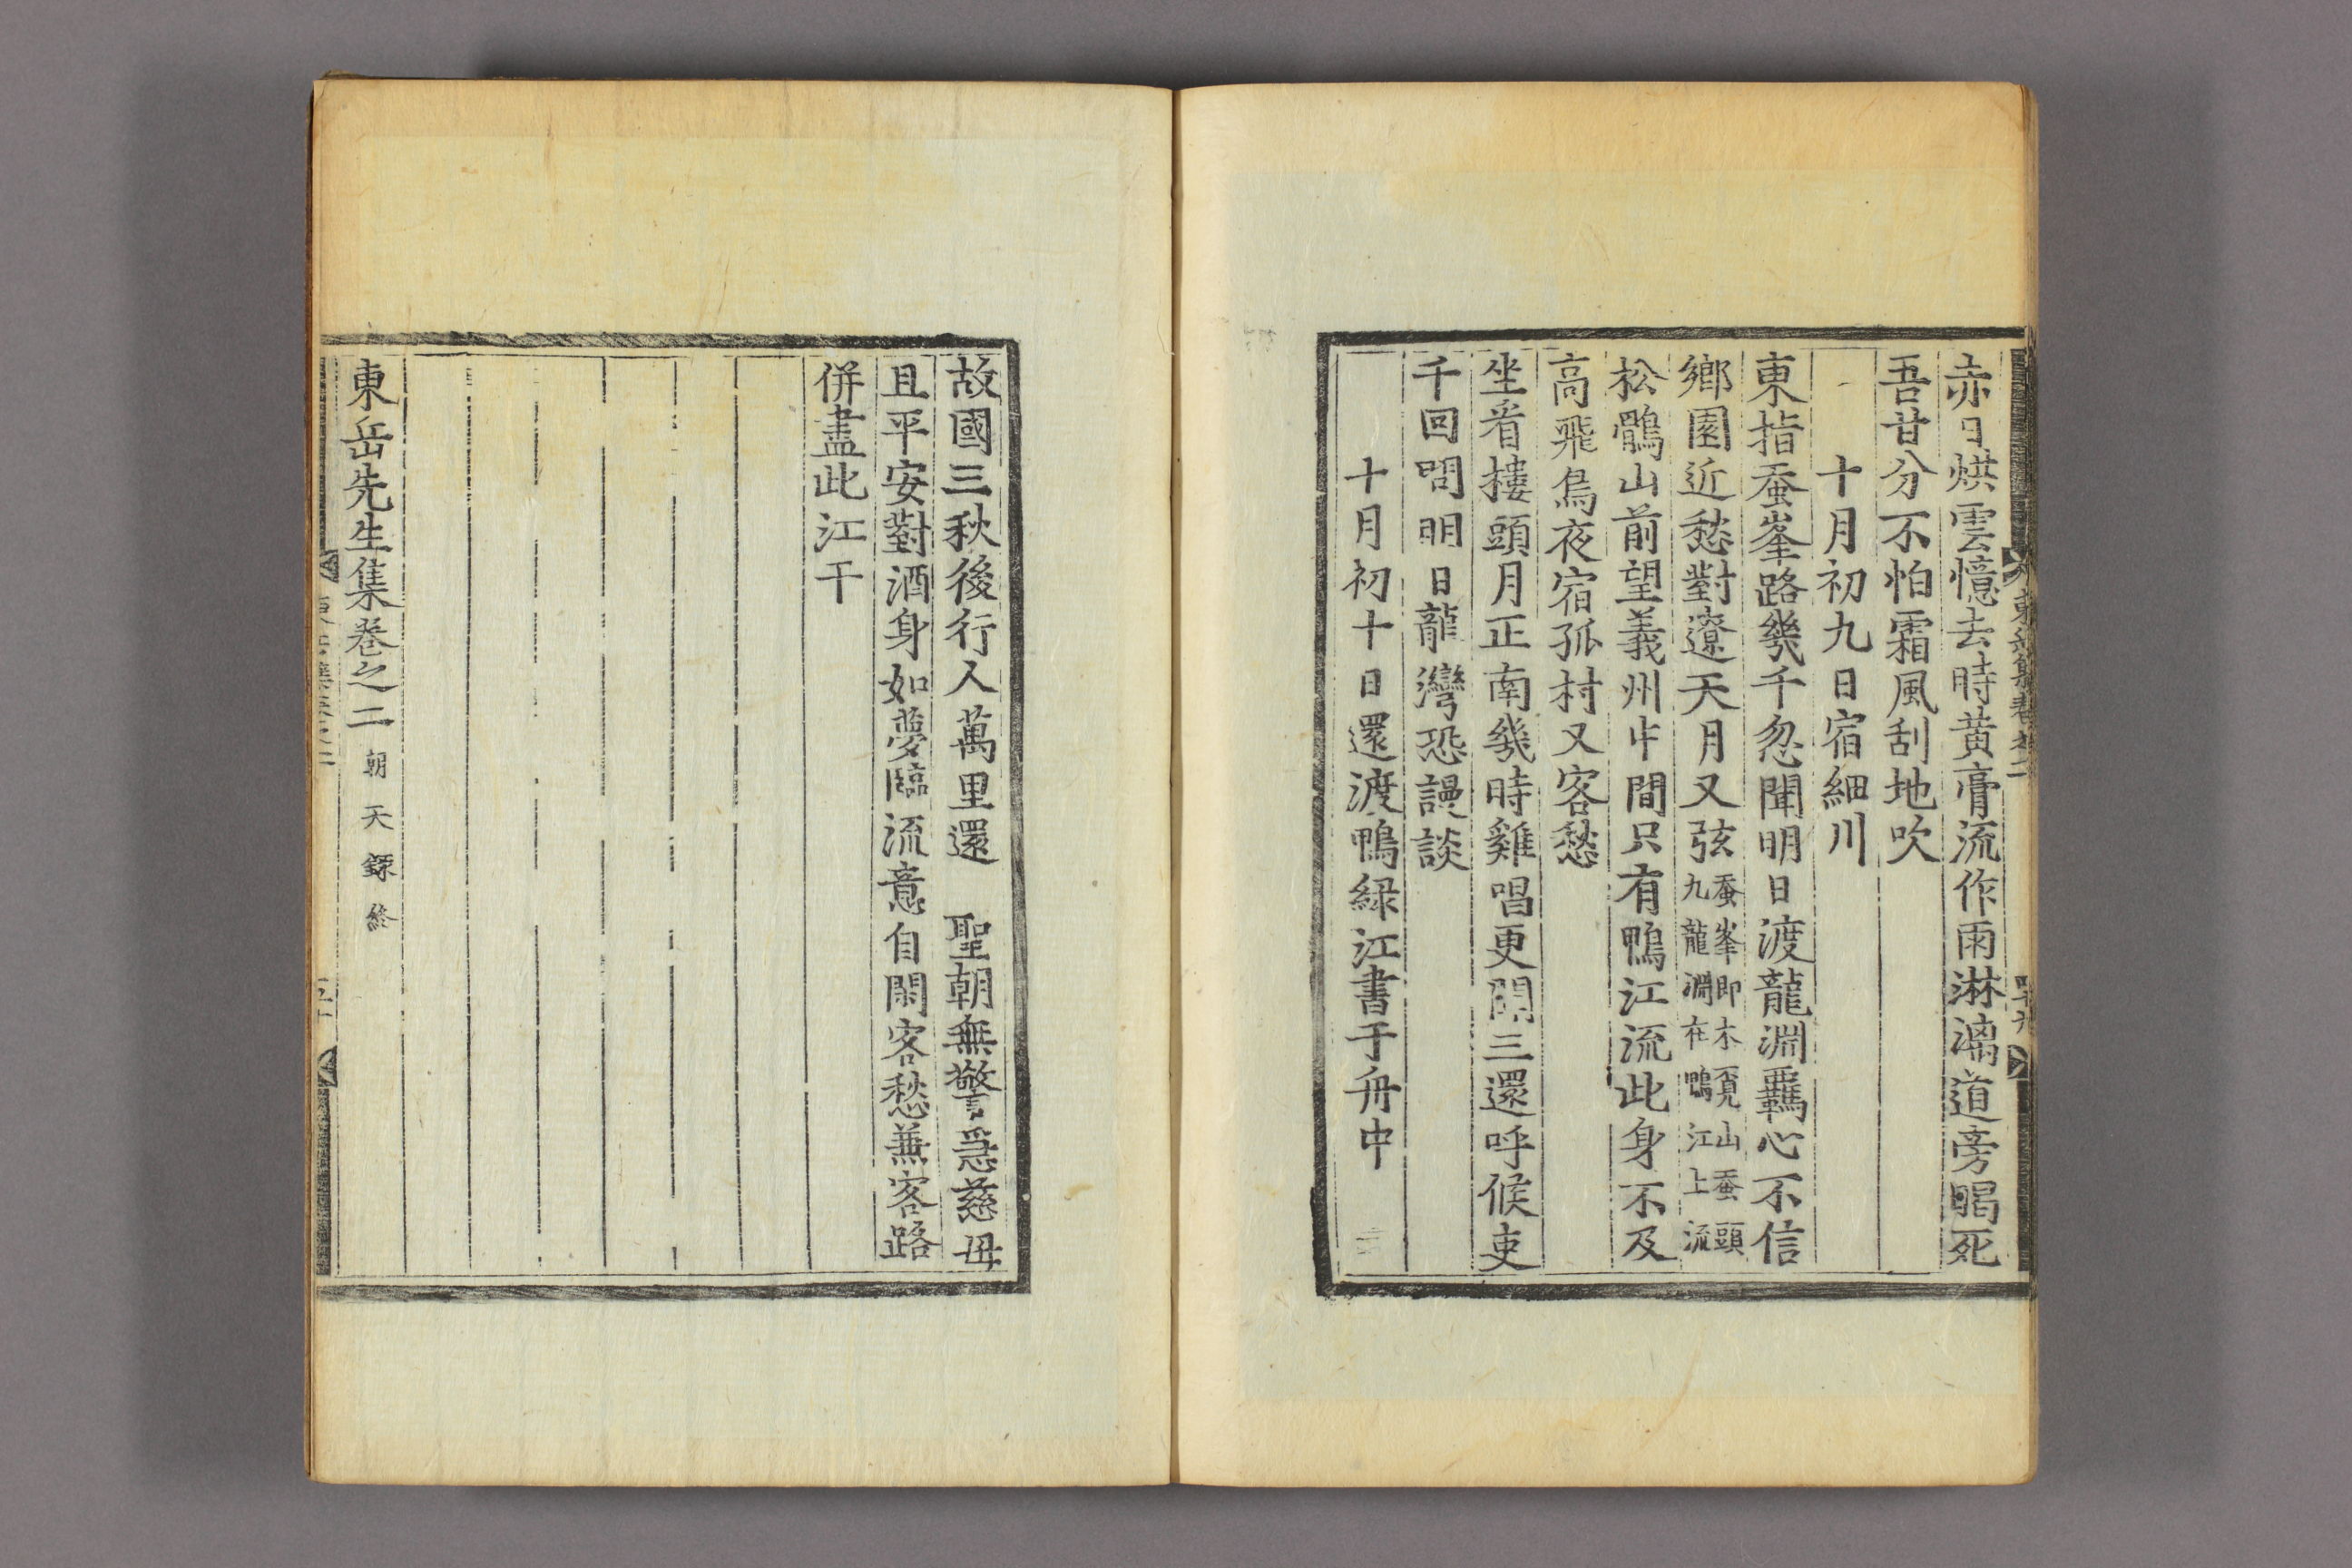 赤日烘雲憶去時黄膏流作雨淋漓道旁暍死
吾甘分不怕霜風刮地吹
十月初九日宿細川
東指蚕峯路幾千忽聞明日渡龍淵羇心不信
鄉園近愁對遼天月又弦
蚕峯即木覓山蚕頭
九龍淵在鴨江上流
松鶻山前望義州中間只有鴨江流此身不及
高飛鳥夜宿孤村又客愁
坐看樓頭月正南幾時雞唱更開三還呼候吏
千回問明日龍灣恐謾談
十月初十日還渡鴨綠江書于舟中
故國三秋後行人萬里還 聖朝無警急慈母
且平安對酒身如夢臨流意自閑客愁兼客路
併盡此江干
東岳先生集巻之二 朝天錄終